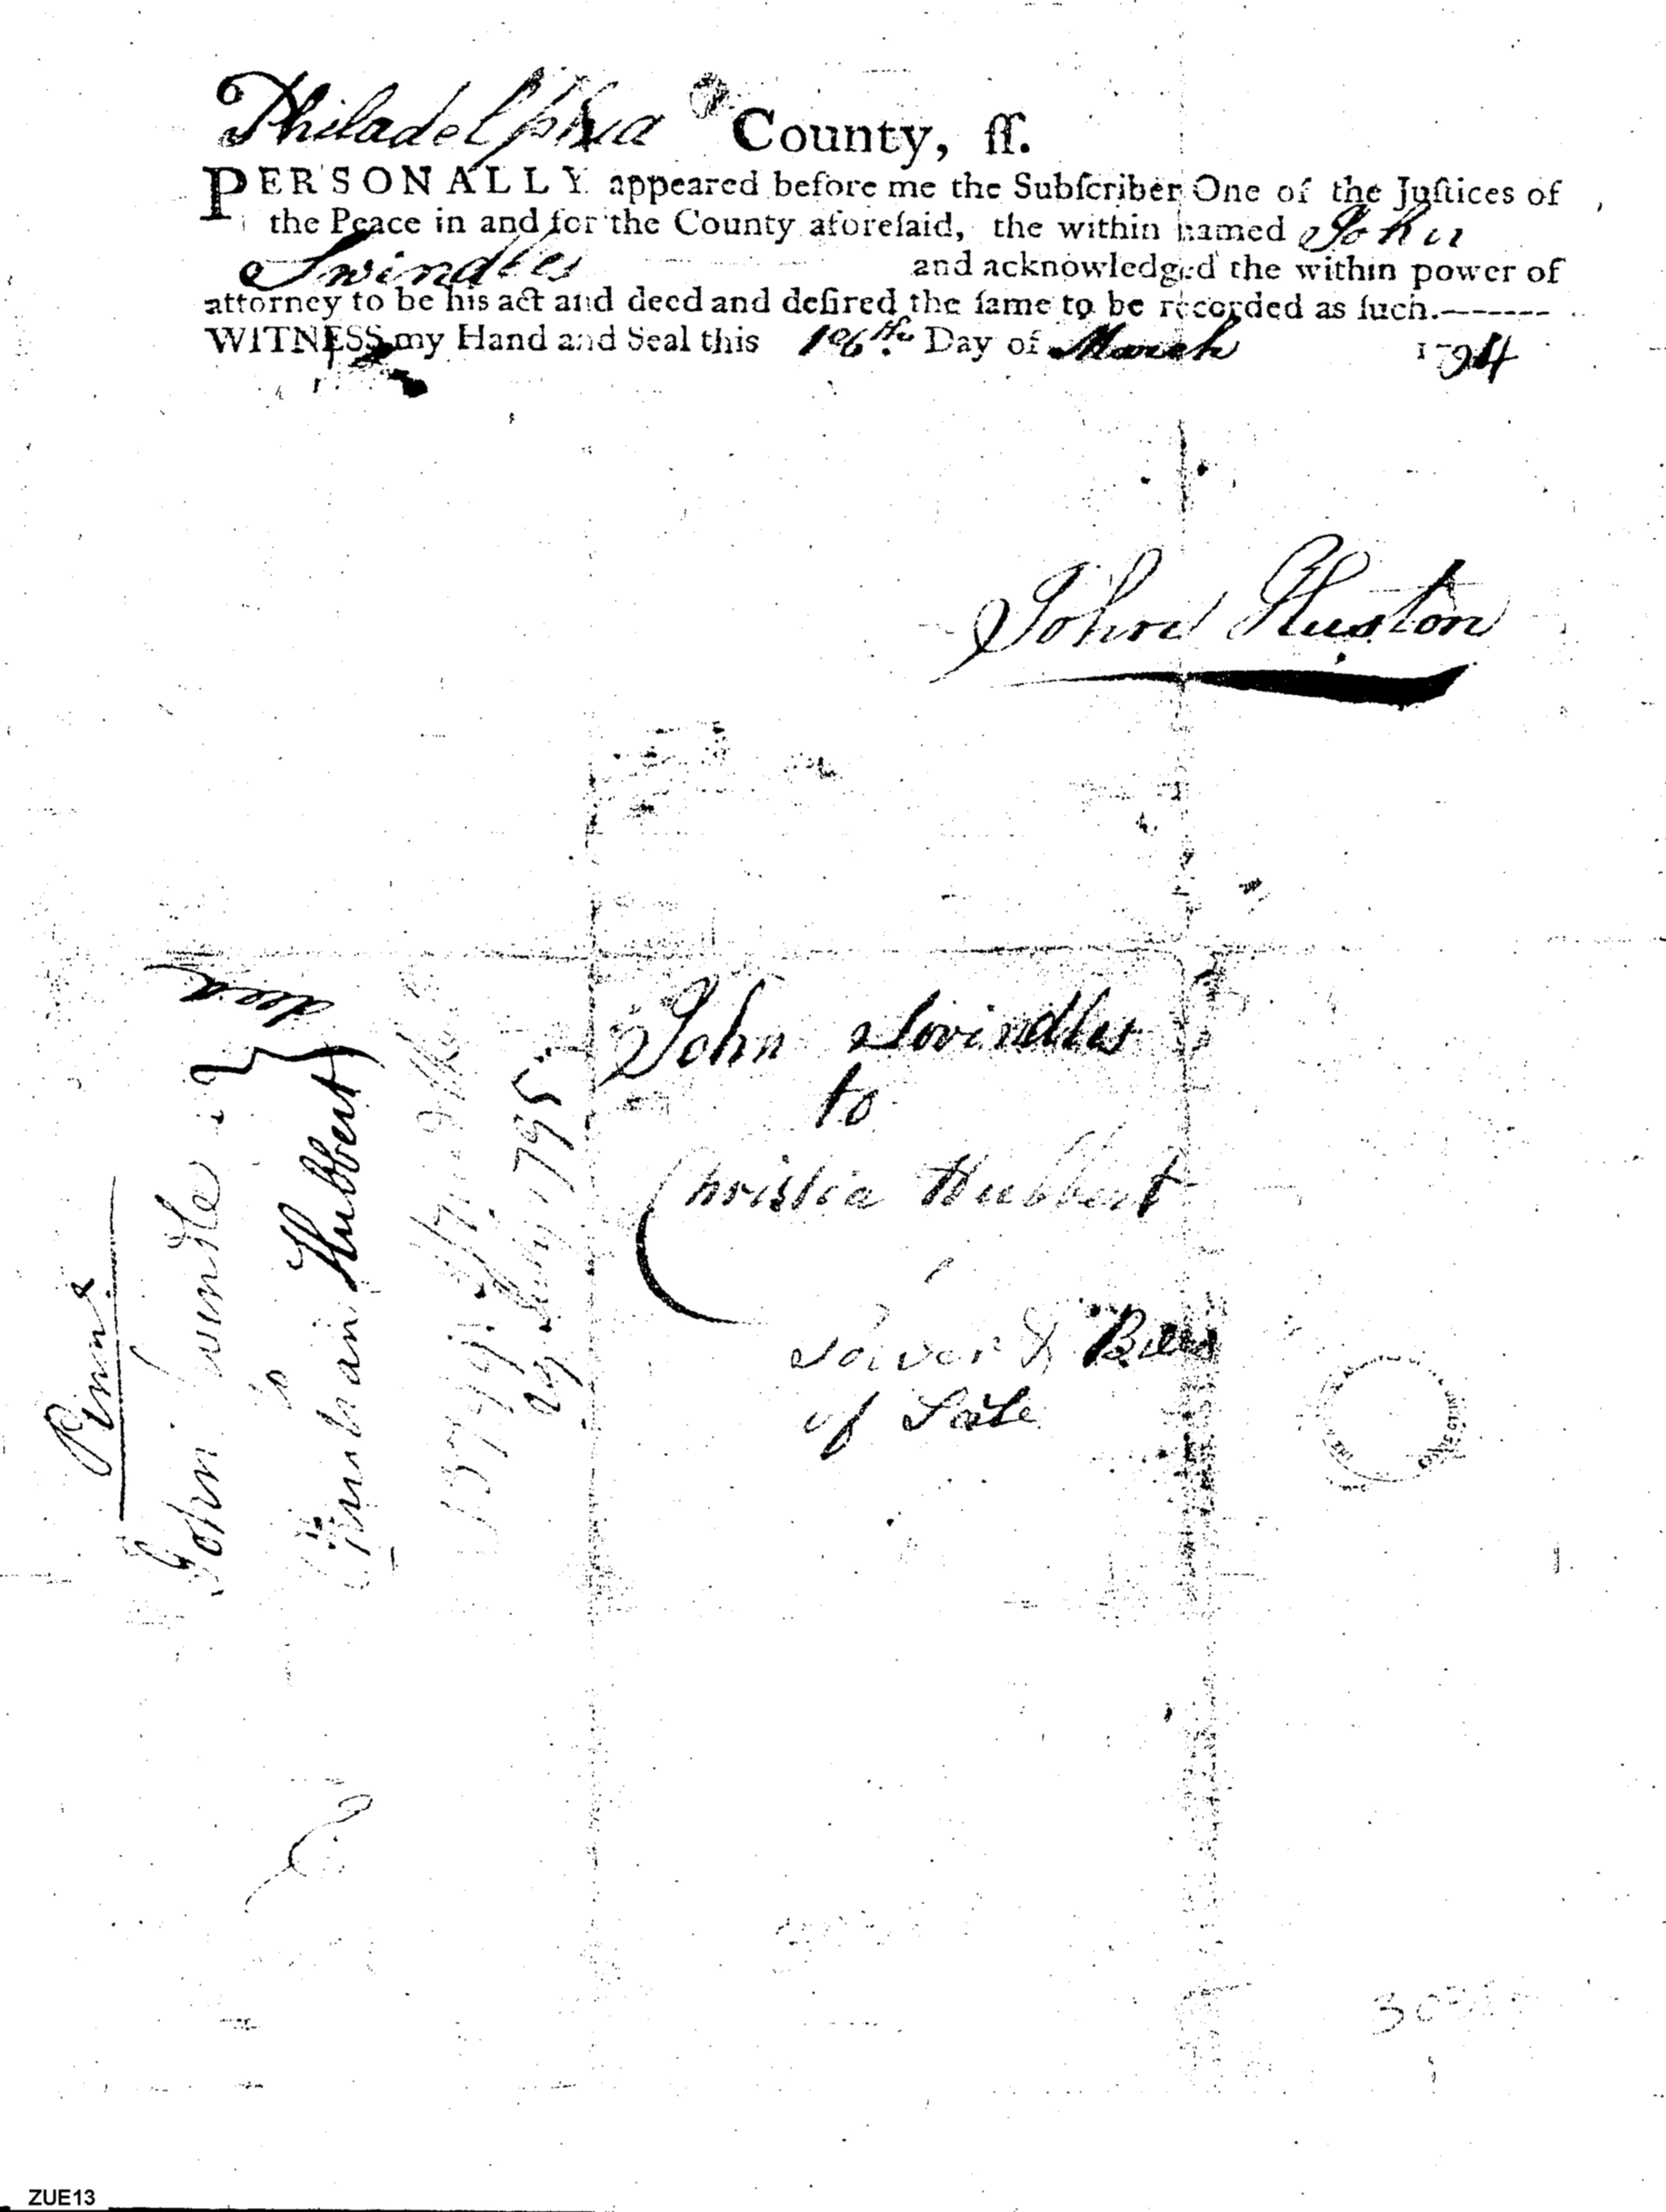 Philadelphia County, ſſ.
PERSONALLY appeared before me the Subſcriber One of the Juſtices of
the Peace in and for the County aforeſaid, the within named John
Swindles and acknowledged the within power of
attorney to be his act and deed and deſired the ſame to be recorded as ſuch.-------
WITNESS my Hand and Seal this Day of March 1794
John Huston
John Swindles
to
Christia Hubbert
Power & Bill
of Sale
Penna.
John Swindle
to
Hubbert
deed
1795
ZUE13